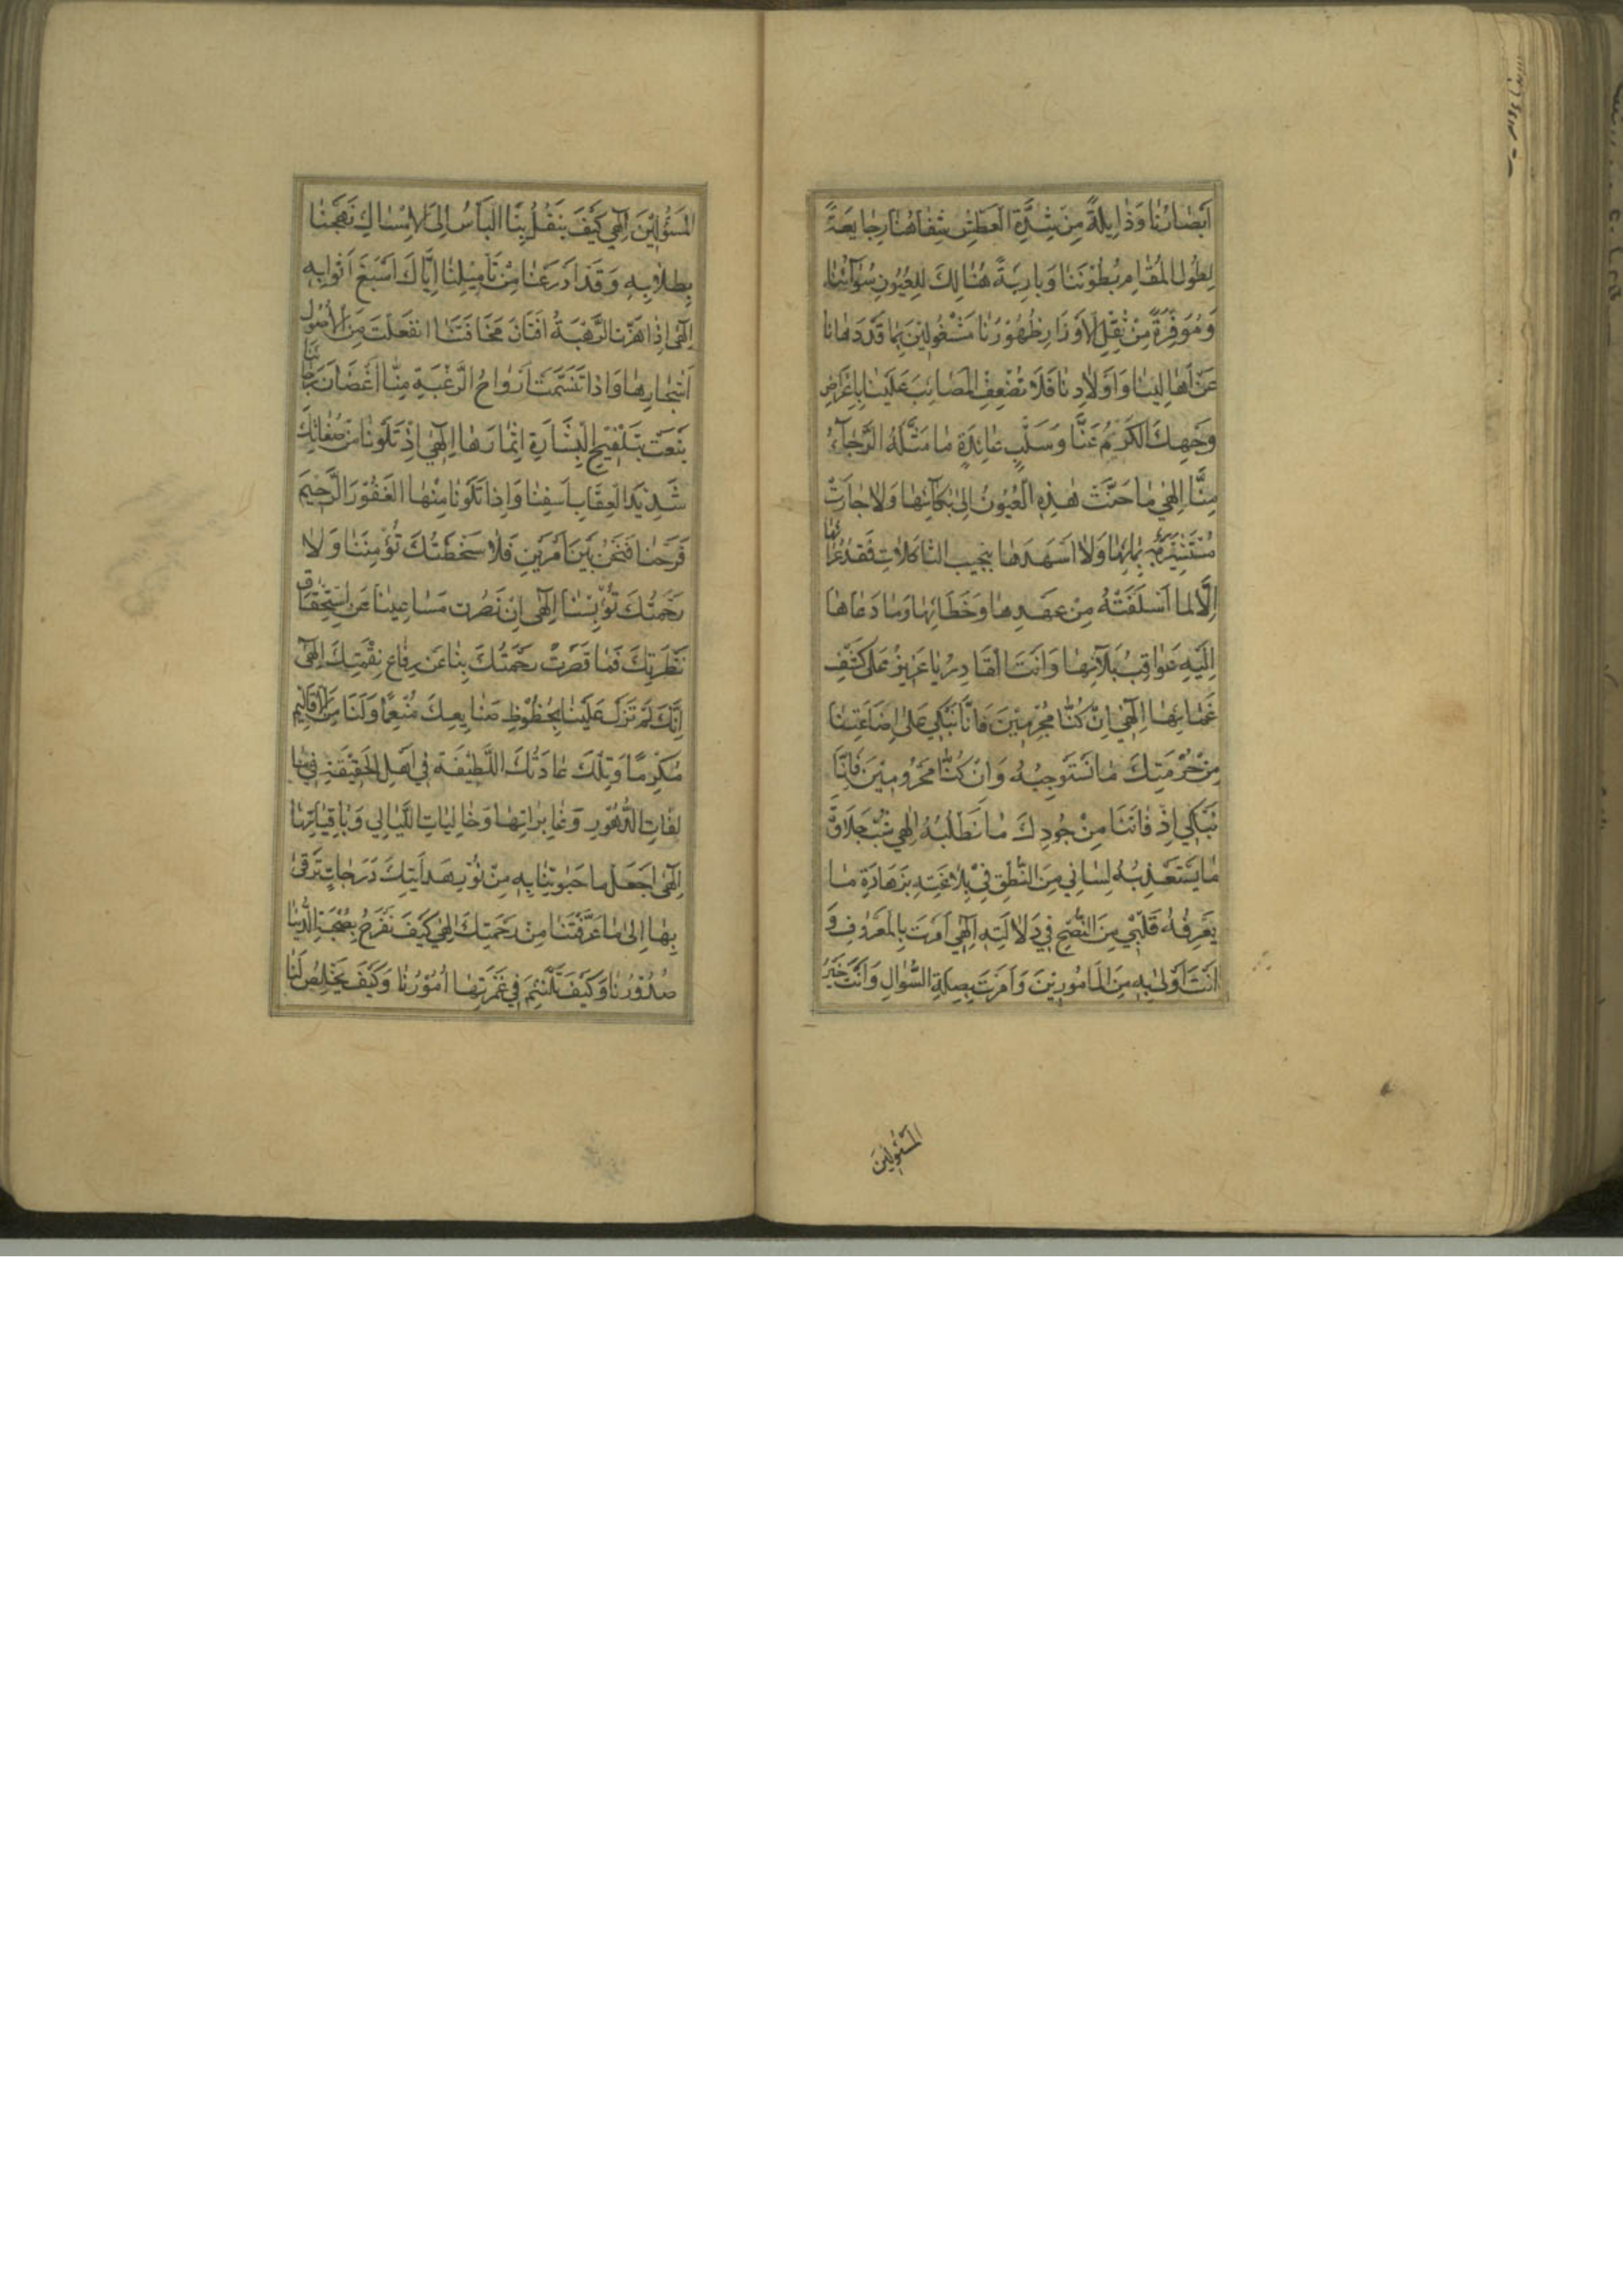 اَبْصَارُنَا وَذَابِلَةً مِنْ شِدَّةِ الْعَطَشِ شِفَاهُنَا وَجَايِعَةً
لِطُولِ الْمُقَامِ بُطُونَنَا وَبَادِيَةً هُنَالِكَ لِلْعُيُونِ سَوْآتُنَا
وَمُوَقَّرَةً مِنْ ثِقْلِ الْاَوْزَارِ ظُهُوْرُنَا مَشْغُولِيْنَ بِمَا قَدْ دَهَانَا
عَنْ اَهَالِيْنَا وَاَوْلَادِنَا فَلَا تُضْعِفِ الْمَصَائِبَ عَلَيْنَا بِاِعْرَاضِ
وَجْهِكَ الْكَرِيْمِ عَنَّا وَسَلْبِ عَائِدَةِ مَا مَثَّلَهُ الرَّجَآءُ
مِنَّا اِلٰهِي مَا حَنَّتْ هٰذِهِ الْعُيُونُ اِلٰى بُكَآئِهَا وَلَا جَادَتْ
بِمَائِهَا وَلَا اَسْهَدَهَا بِنَحِيبِ الثَّاكِلَاتِ فَقْدُ عَزَائِهَا
اِلَّا لِمَا اَسْلَفَتْهُ مِنْ عَمْدِهَا وَخَطَائِهَا وَمَا دَعَاهَا
اِلَيْهِ عَوَاقِبُ بَلَآئِهَا وَاَنْتَ الْقَادِرُ يَا عَزِيْزُ عَلٰى كَشْفِ
غَمَّائِهَا اِلٰهِي اِنْ كُنَّا مُجْرِمِيْنَ فَاِنَّا نَبْكِي عَلٰى اِضَاعَتِنَا
مِنْ حُرْمَتِكَ مَا نَسْتَوْجِبُهُ وَاِنْ كُنَّا مَحْرُومِيْنَ فَاِنَّا
نَبْكِي اِذْ فَاتَنَا مِنْ جُودِكَ مَا نَطْلُبُهُ اِلٰهِي شُبْ حَلَاوَةَ
مَا يَسْتَعْذِبُهُ لِسَانِي مِنَ النُّطْقِ فِي بَلَاغَتِهِ بِزَهَادَةِ مَا
يَعْرِفُهُ قَلْبِي مِنَ النُّصْحِ فِي دَلَالَتِهِ اِلٰهِي اَمَرْتَ بِالْمَعْرُوفِ وَ
اَنْتَ اَوْلٰى بِهِ مِنَ الْمَامُورِيْنَ وَاَمَرْتَ بِصِلَةِ السُّؤَالِ وَاَنْتَ خَيْرُ
الْمَسْئُولِيْنَ
الْمَسْئُولِيْنَ اِلٰهِي كَيْفَ يَنْقُلُ بِنَا الْيَاْسُ اِلَى الْاِمْسَاكِ
بِطِلَابِهِ وَقَدْ اَدْرَعَنَا مِنْ تَاْمِيْلِنَا اِيَّاكَ اَسْبَغَ اَثْوَابِهِ
اِلٰهِي اِذَا هَزَّتِ الرَّهْبَةُ اَفْنَانَ مَخَافَتِنَا انْقَعَلَتْ مِنَ الْاُصُولِ
اَشْجَارِهَا وَاِذَا تَنَسَّمَتْ اَرْوَاحُ الرَّغْبَةِ مِنَّا اَغْصَانَ رَجَائِنَا
يَنَعَتْ بِتَلْقِيْحِ الْبِشَارَةِ اِثْمَارَهَا اِلٰهِي اِذْ تَلَوْنَا مِنْ صِفَاتِكَ
شَدِيْدَ الْعِقَابِ اَسِفْنَا وَاِذَا تَلَوْنَا مِنْهَا الْغَفُوْرَ الرَّحِيْمَ
فَرِحْنَا فَنَحْنُ بَيْنَ اَمْرَيْنِ فَلَا سَخْطَتُكَ تُؤْمِنُنَا وَلَا
رَحْمَتُكَ تُؤْيِسُنَا اِلٰهِي اِنْ قَصُرَتْ مَسَاعِيْنَا عَنِ اسْتِحْقَاقِ
نَظْرَتِكَ فَمَا قَصُرَتْ رَحْمَتُكَ بِنَا عَنْ دِفَاعِ نِقْمَتِكَ اِلٰهِي
اِنَّكَ لَمْ تَزَلْ عَلَيْنَا بِحُظُوْظِ صَنَايِعِكَ مُنْعِمًا وَلَنَا مِنْ بَيْنِ الْاَقَالِيْمِ
مُكْرِمًا وَتِلْكَ عَادَتُكَ اللَّطِيْفَةُ فِي اَهْلِ الْحَنِيْفَةِ فِي
سَالِفَاتِ الدُّهُوْرِ وَغَابِرَاتِهَا وَخَالِيَاتِ اللَّيَالِي وَبَاقِيَاتِهَا
اِلٰهِي اجْعَلْ مَا حَبَوْتَنَا بِهِ مِنْ نُوْرِ هِدَايَتِكَ دَرَجَاتٍ نَرْقٰى
بِهَا اِلٰى مَا عَرَّفْتَنَا مِنْ رَحْمَتِكَ اِلٰهِي كَيْفَ نَفْرَحُ بِصُحْبَةِ الدُّنْيَا
صُدُوْرُنَا وَكَيْفَ تَلْتَئِمُ فِي غَمْرَتِهَا اُمُوْرُنَا وَكَيْفَ يَخْلُصُ لَنَا